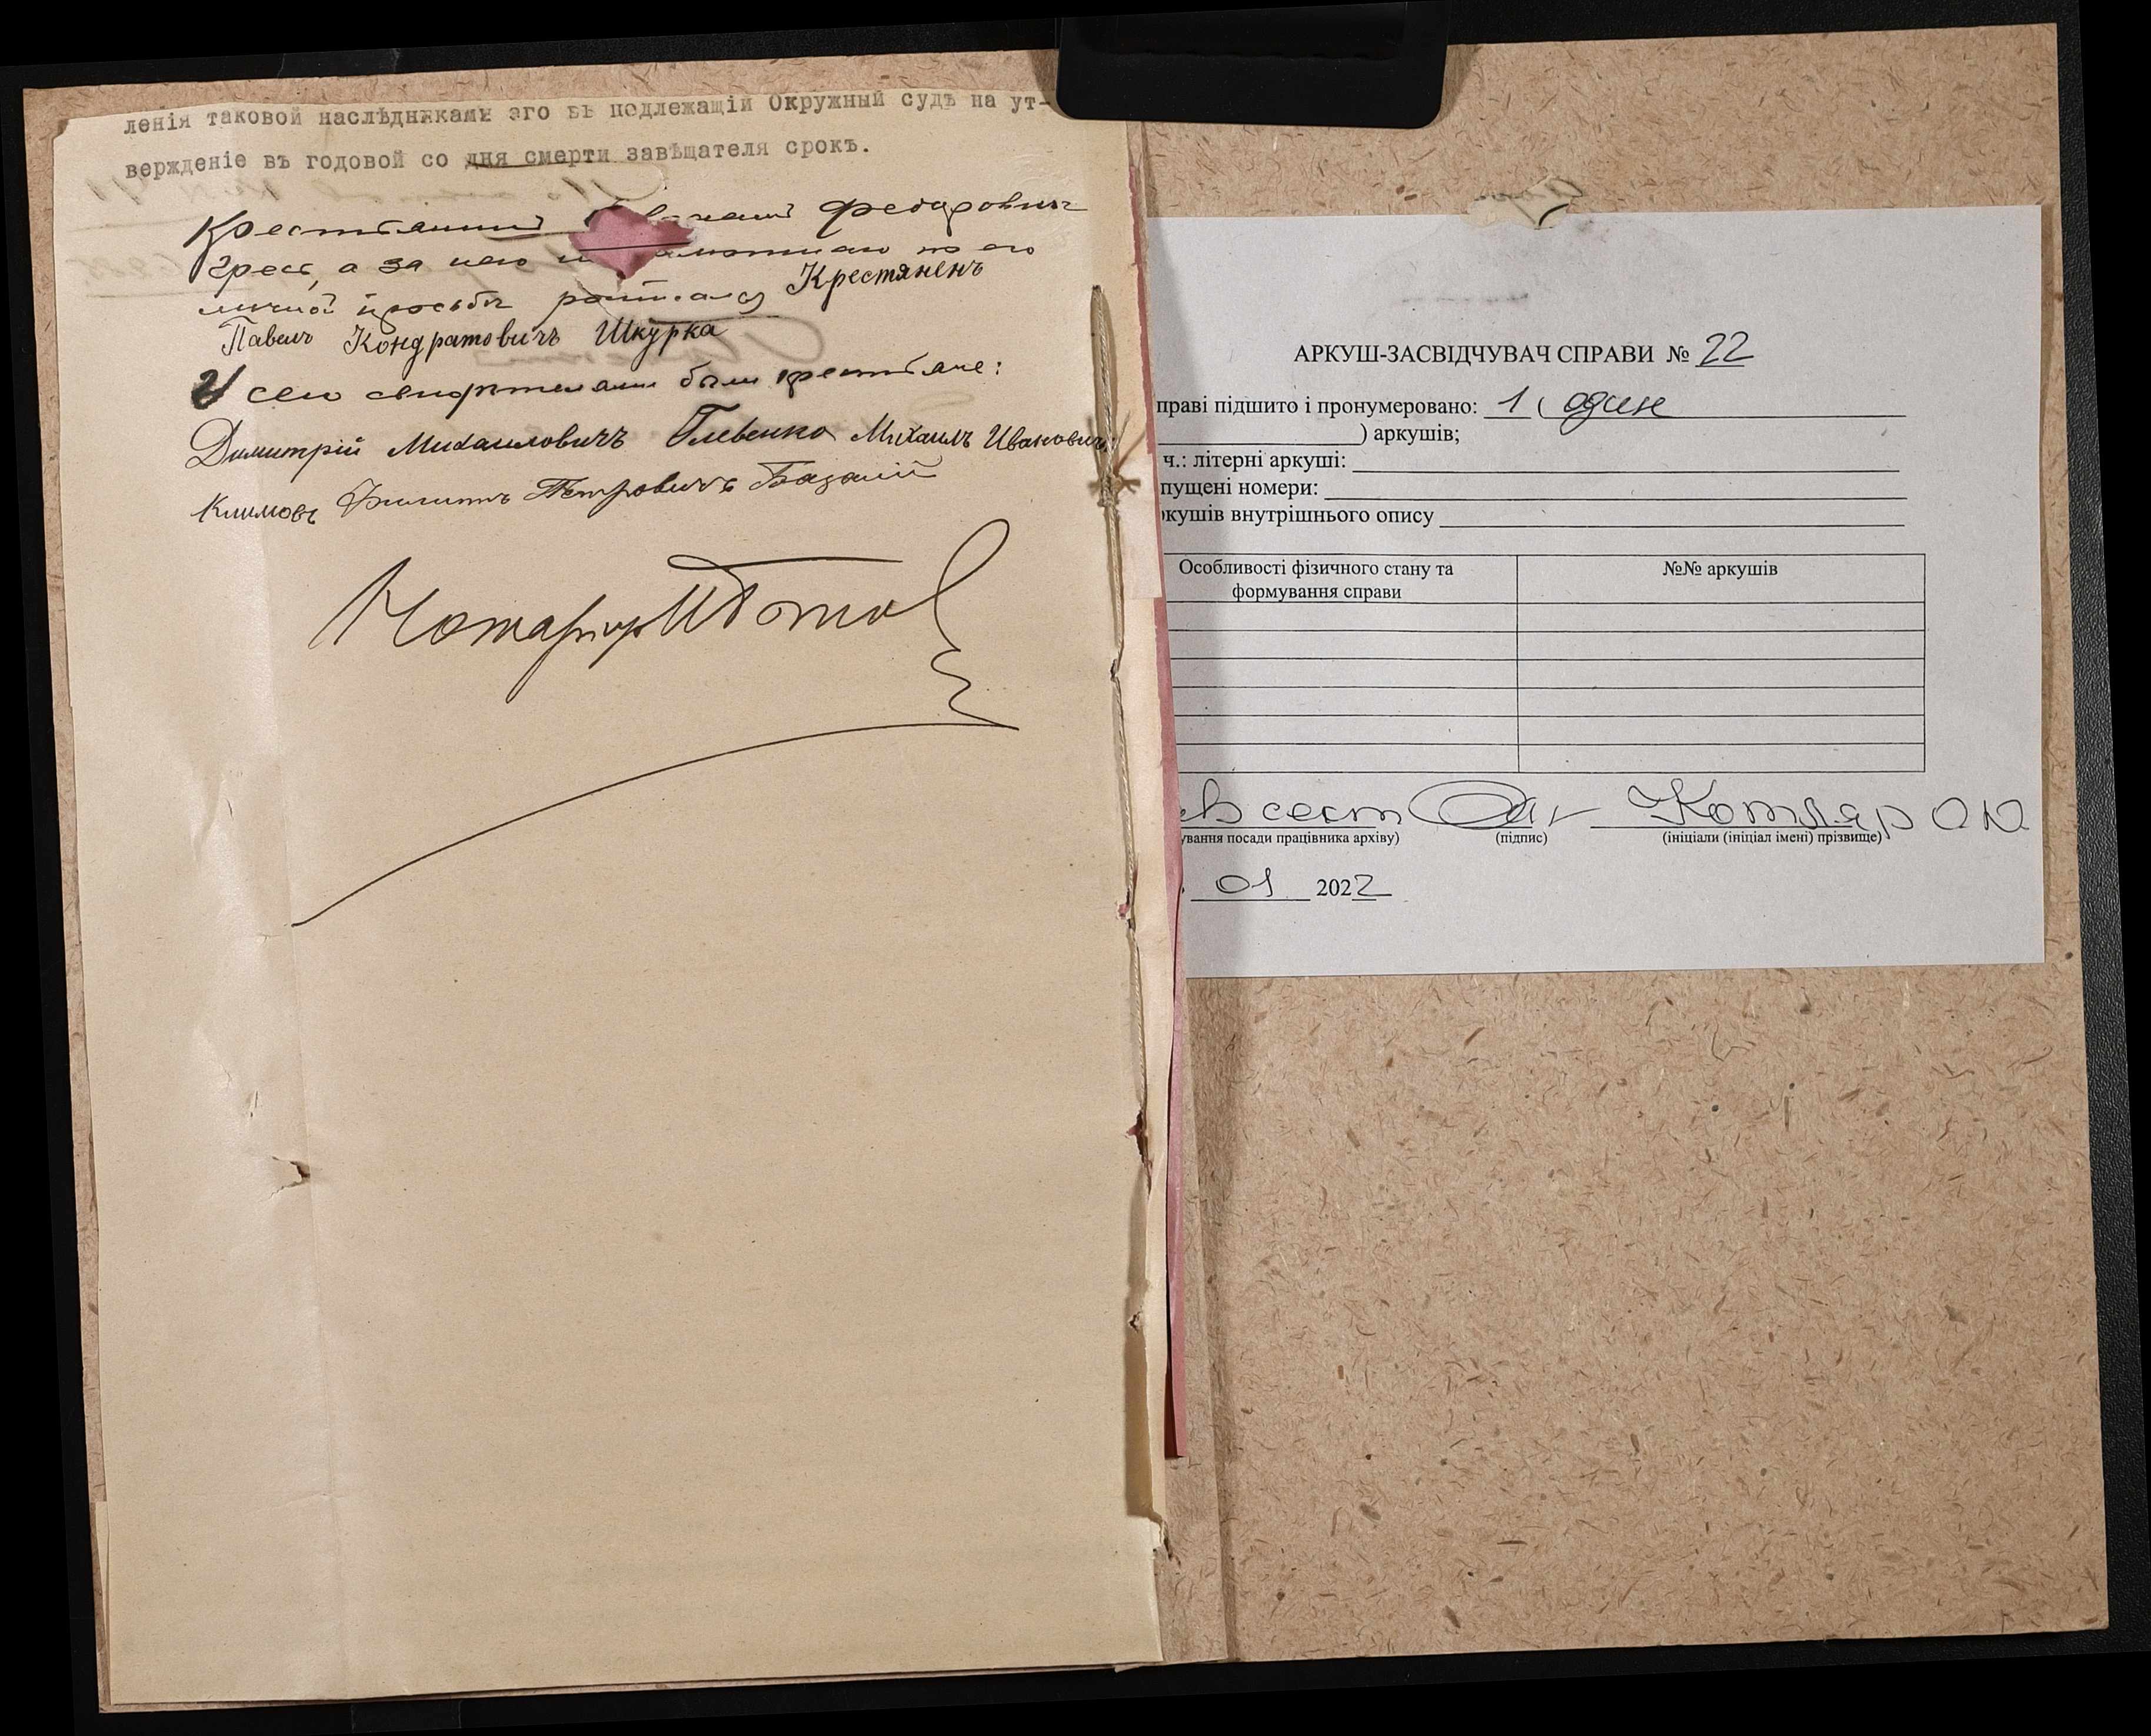 ленія таковой наслѣдниками эго въ подлежащій Окружный судъ на ут-
вержденіе въ годовой со дня смерти завѣщателя срокъ.
Крестьянинъ Федоровичъ
Грессъ, а за него по его
личной просьбѣ росписался Крестяненъ
Павелъ Кондратовичъ Шкурка
У сего свидѣтелями были крестьяне:
Димитрій Михаиловичъ Глевенко Михаилъ Ивановичъ
Климовъ Филиппъ Петровичъ Базалій
Нотаріусъ
АРКУШ-ЗАСВІДЧУВАЧ СПРАВИ № 22
праві підшито і пронумеровано: 1 ( один
) аркушів;
ч.: літерні аркуші:
пущені номери:
ркушів внутрішнього опису
Особливості фізичного стану та формування справи
№№ аркушів
Котляр О Ю
ування посади працівника архіву) (підпис) (ініціали (ініціал імені) прізвище)
01 2022